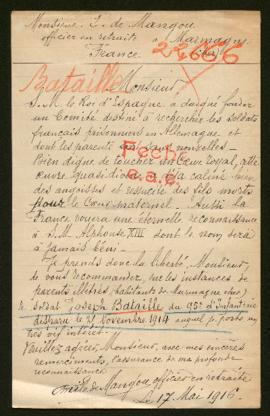 Monsieur E. de Mangou
officier en retraite à Marmagne
France (Cher)
24656
Bataille
Monsieur,
S.M. le Roi d'Espagne a daigné fonder
un Comité destiné à rechercher les soldats
français prisonniers en Allemagne et
dont les parents sont sans nouvelles.
Bien digne de toucher un Cœur royal, cette
œuvre quasi divine déjà calme bien
des angoisses et ressuscite des fils morts
pour le Cœur maternel. Aussi la
France vouera une éternelle reconnaissance
à S.M. Alphonse XIII dont le nom sera
à jamais béni.
Fecha
Je prends donc la liberté, Monsieur,
de vous recommander, sur les instances de
parents illettrés, habitants de Marmagne,
le soldat Joseph Bataille du 95e d'Infanterie
disparu le 21 novembre 1914 auquel je porte un
très vif intérêt.
Veuillez agréer, Monsieur, avec mes sincères
remerciements, l'assurance de ma profonde
reconnaissance
de Mangou, officier en retraite
Le 17 Mai 1916